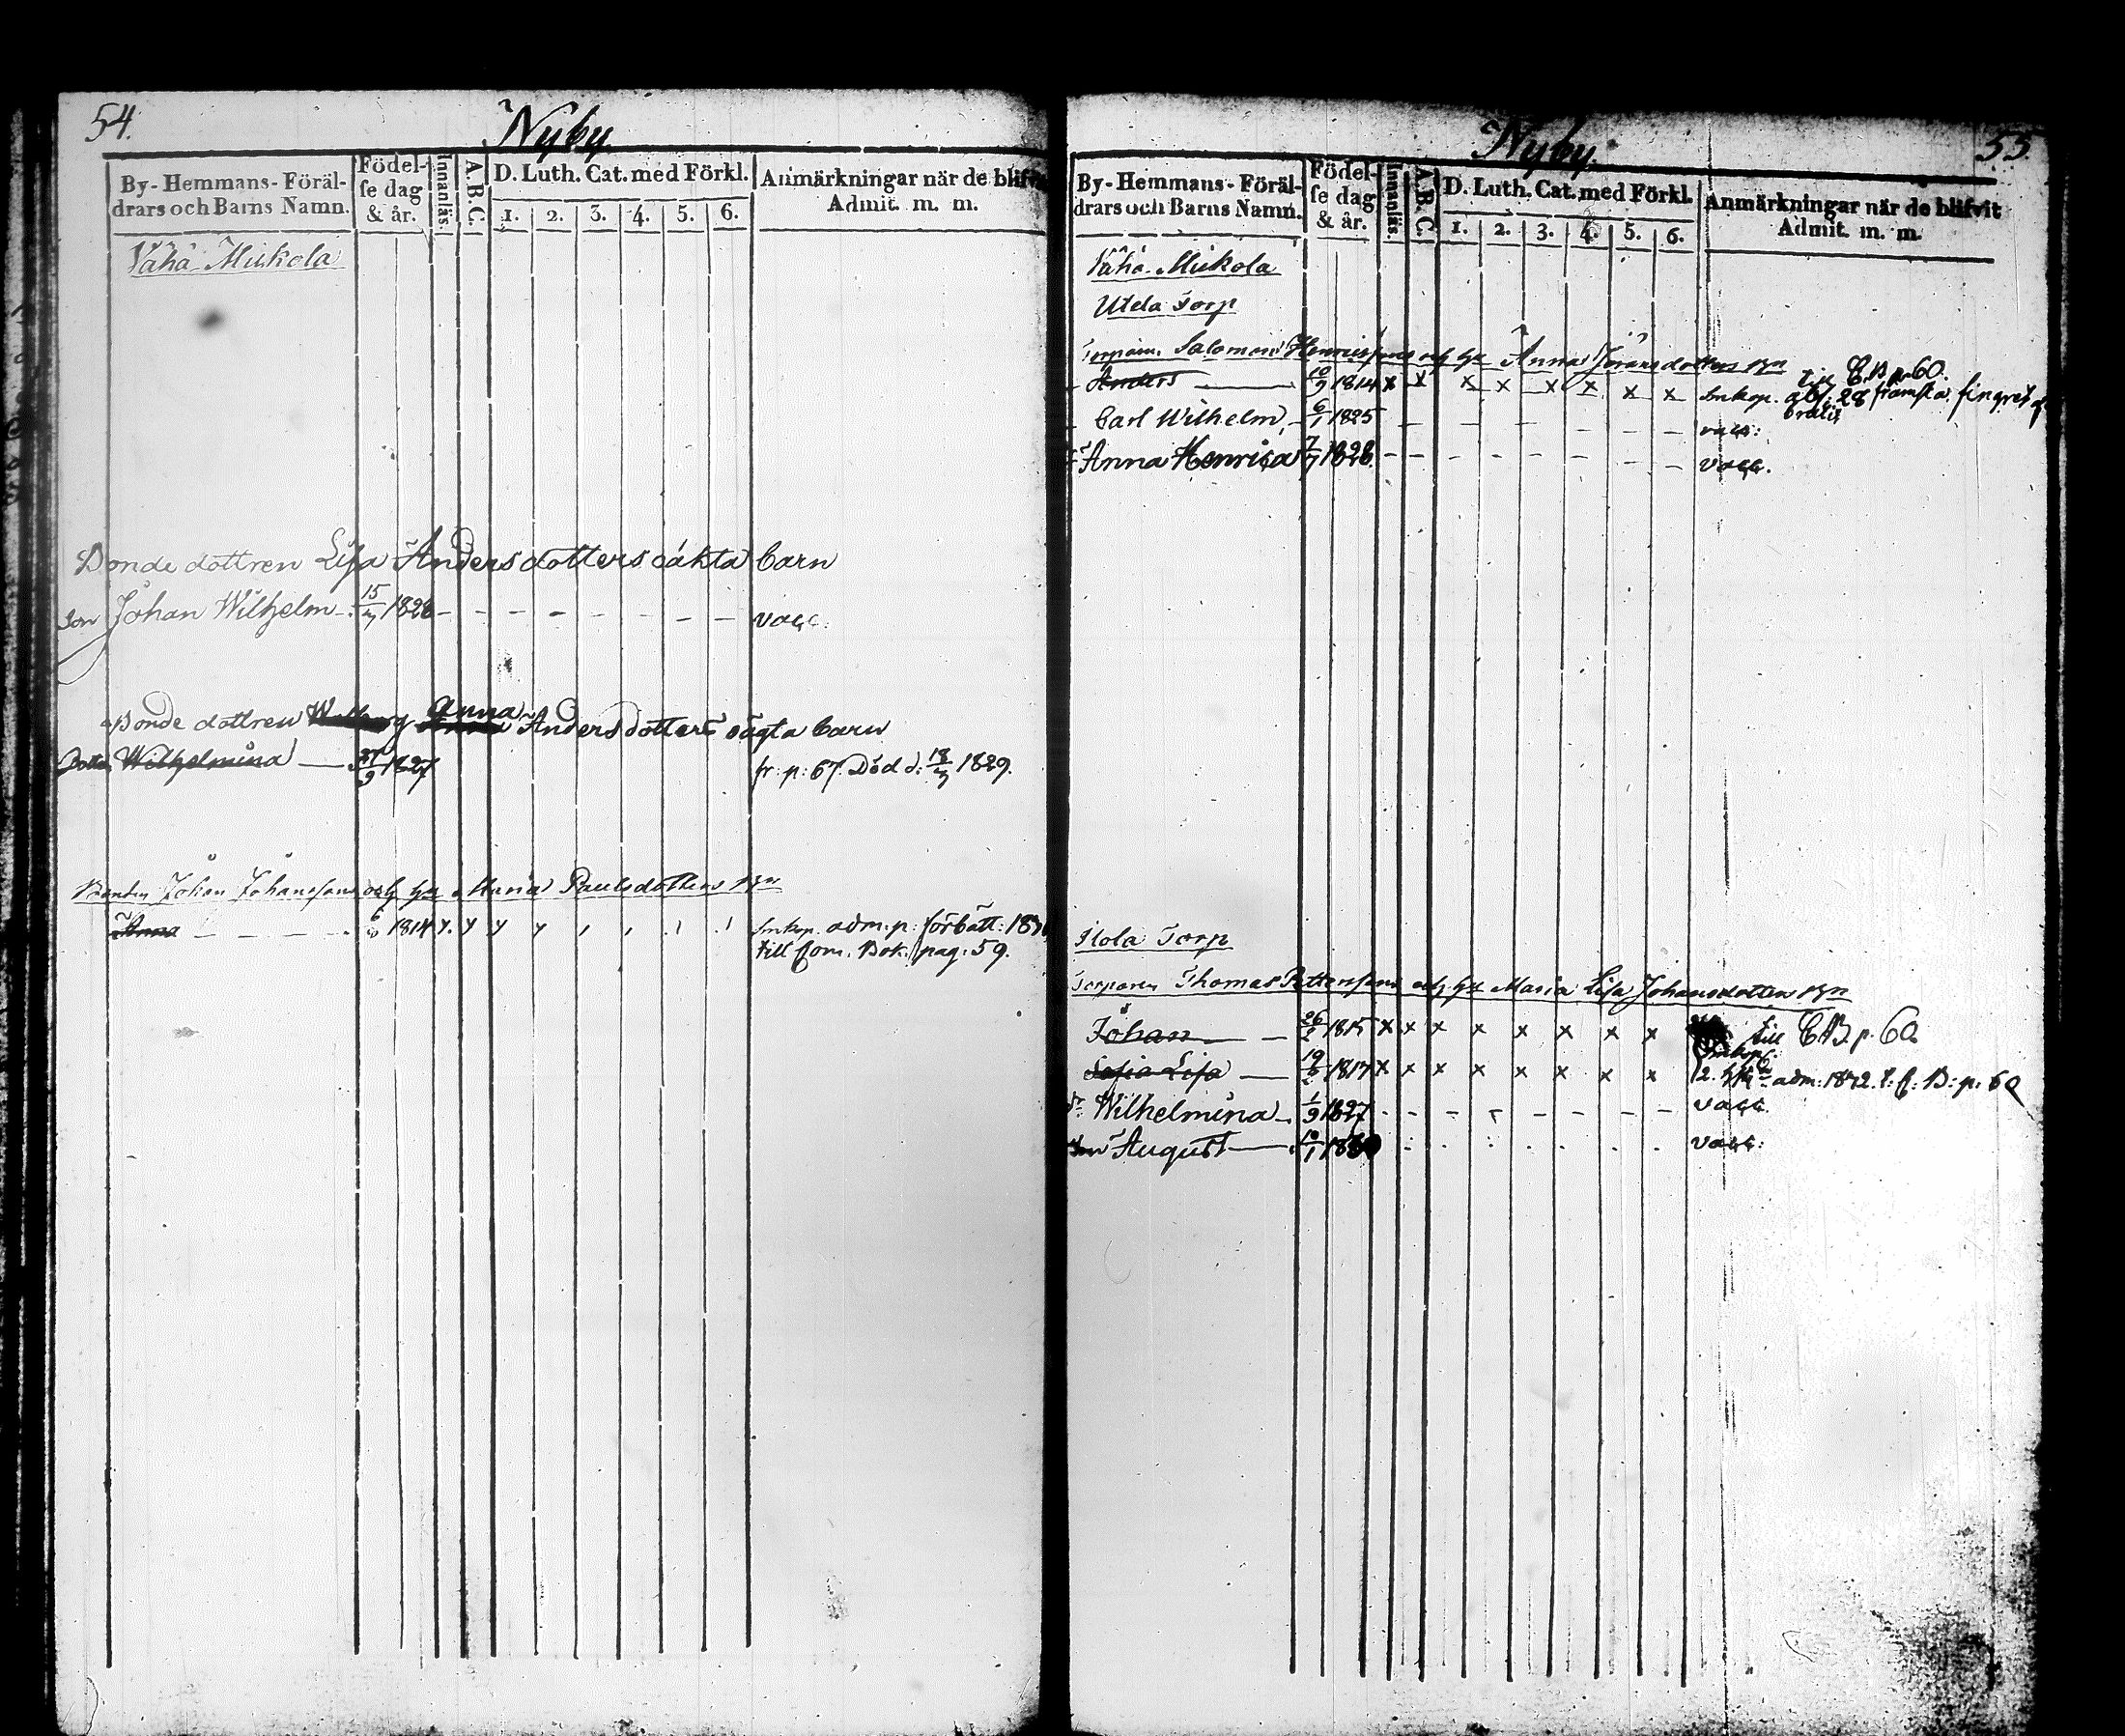 54.
Nyby
By- Hemmans- Föräl-
drars och Barns Namn.
Födel-
se dag
& år.
Innanläs.
A.B.C.
D. Luth. Cat. med Förkl.
1. 2. 3. 4. 5. 6.
Anmärkningar när de blifvit
Admit. m. m.
Vähä Mickola
Bonde dottren Lisa Andersdotters oäkta barn
Son Johan Wilhelm 15/7 1828 - - - - - - - - vacc.
Bonde dottren Anna Andersdotters oägta barn
Dotter Wilhelmina 27/9 1827 fr: p: 67. Död d: 18/7 1829.
Bonden Johan Johanssons och hu Maria Paulsdotters Bn
Anna 1814 Smkop. adm. p: förbätt:
till Com. Bok. pag. 59.
Nyby.
55.
By- Hemmans- Föräl-
drars och Barns Namn.
Födel-
se dag
& år.
Innanläs.
A.B.C.
D. Luth. Cat. med Förkl.
1. 2. 3. 4. 5. 6.
Anmärkningar när de blifvit
Admit. m. m.
Vähä Mickola
Utela Torp
Torparn. Salomon Henricssons och hu Anna Jöransdotters Bn
till C.B. p. 60.
Anders 10/9 1814 x x x x x x x x Smkop. främsta fingret
Carl Wilhelm 6/1 1825 - - - - - - - - vacc:
Anna Henrica 7/7 1828 - - - - - - - - vacc.
Ilola Torp
Torparen Thomas Pettersons och hu Maria Lisa Johansdotters Bn
Johan 26/2 1815 x x x x x x x x till C.B. p. 60.
Sofia Lisa 1817 x x x x x x x x Smkop: adm: B: p: 60
Wilhelmina 1/9 1827 - - - - - - - - vacc.
Son August 10/1 vacc: